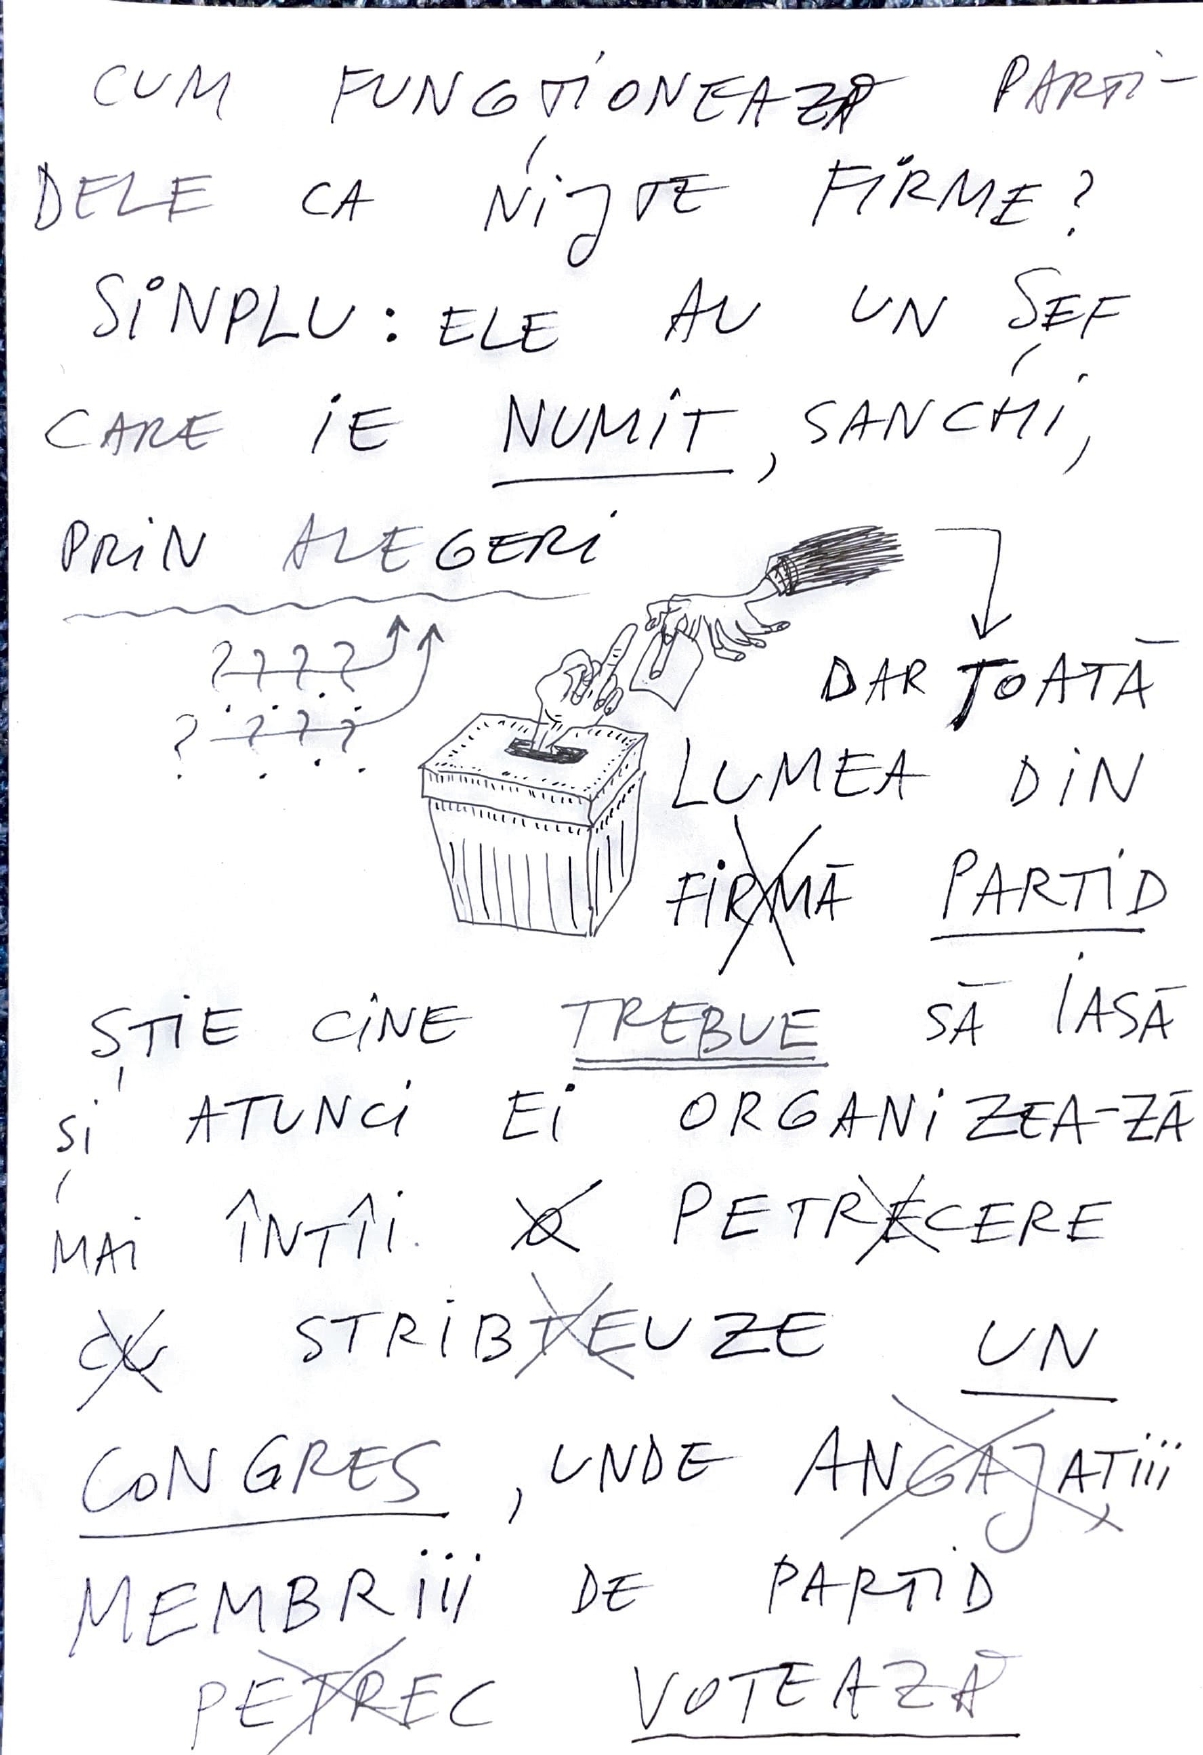 CUM FUNGȚIONEAZĂ PARTI-
DELE CA NIȘTE FIRME?
SINPLU: ELE AU UN ȘEF
CARE IE NUMIT, SANCHI,
PRIN ALEGERI
? ? ? ?
? ? ? ?
DAR TOATĂ
LUMEA DIN
FIRMĂ PARTID
ȘTIE CINE TREBUE SĂ IASĂ
ȘI ATUNCI EI ORGANIZEA-ZĂ
MAI ÎNTÎI O PETRECERE
CU STRIBTEUZE UN
CONGRES, UNDE ANGAJAȚIII
MEMBRIII DE PARTID
PETREC VOTEAZĂ